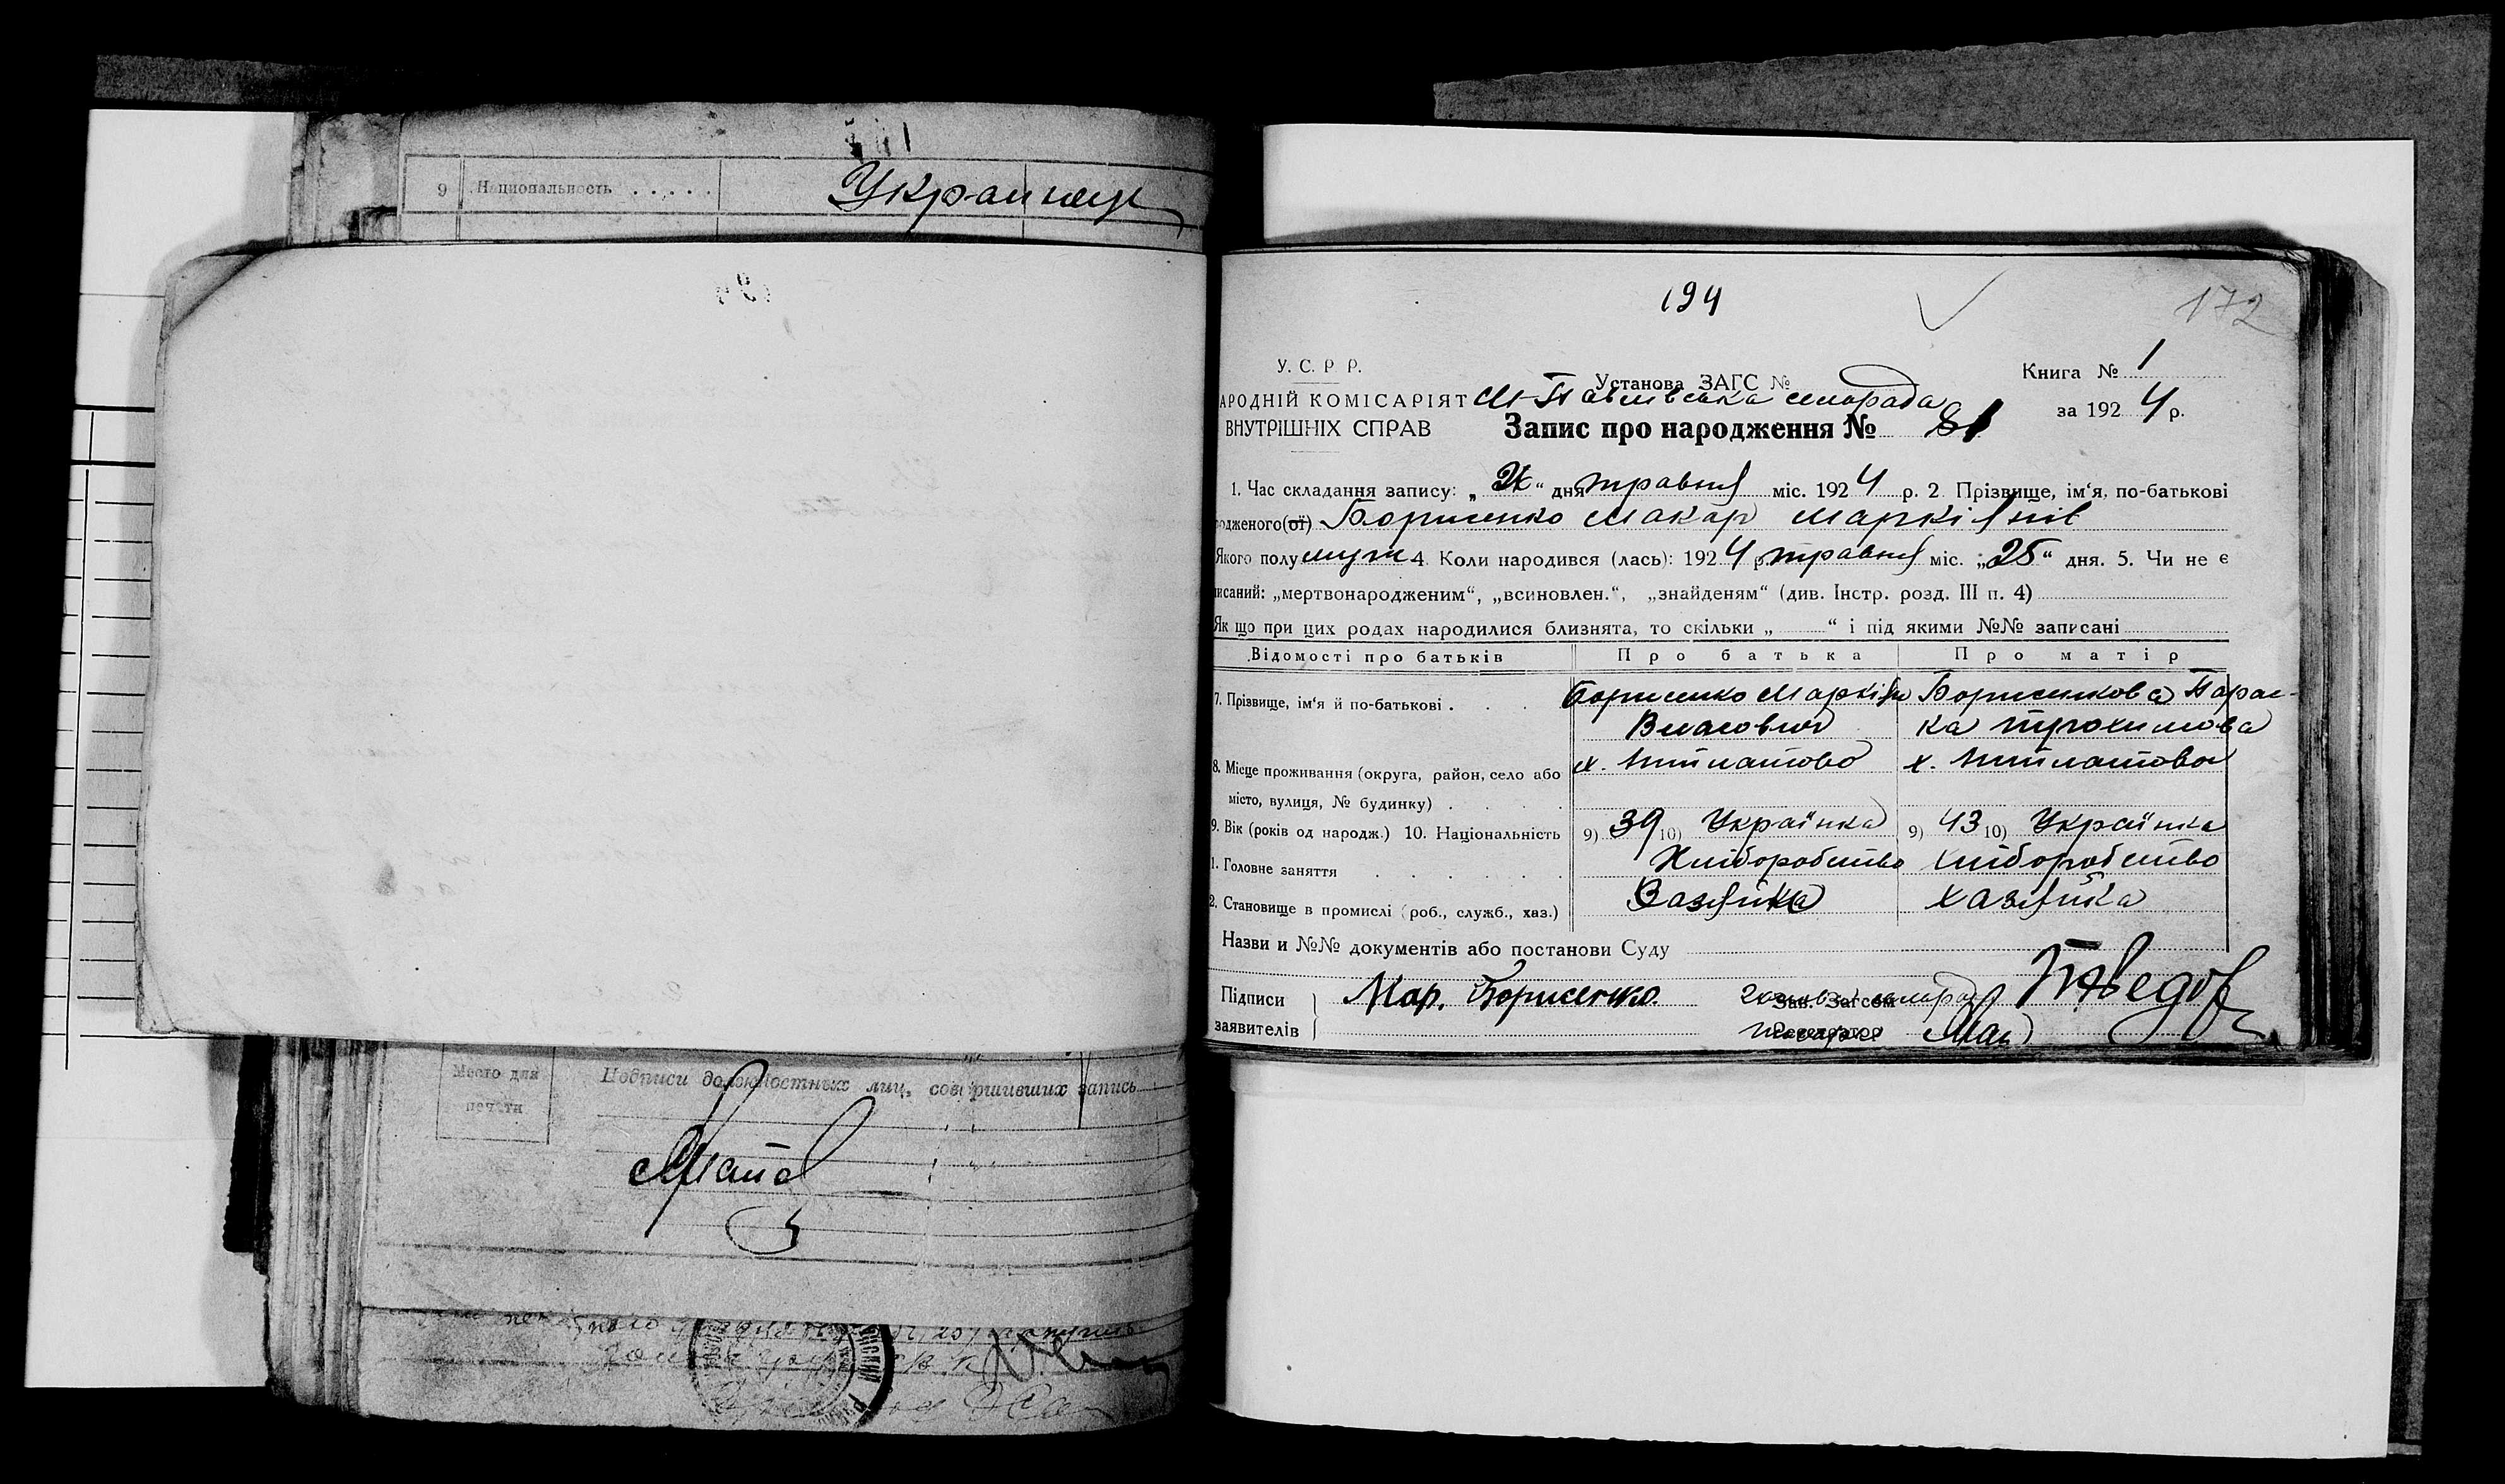 9 Национальность . . . . . Украинец
194
172
У. С. Р Р.
Установа ЗАГС №
Книга № 1
АРОДНІЙ КОМІСАРІЯТ М-Павлівська сільрада
за 1924 р.
ВНУТРІШНІХ СПРАВ
Запис про народження № 81
1. Час складання запису: „ “ дня травня міс. 1924 р. 2 Прізвище, ім‘я, по-батькові
одженого(ої) Борисенко Макар Маркіянів
Якого полу муж 4. Коли народився (лась): 1924 р. травня міс. „25“ дня. 5. Чи не є
писаний: „мертвонародженим“, „всиновлен.“, „знайденям“ (див. Інстр. розд. III п. 4)
Як що при цих родах народилися близнята, то скільки „ “ і під якими №№ записані
Відомості про батьків Про батька Про матір
7. Прізвище, ім‘я й по-батькові . . . Борисенко Маркіян Борисенкова Парас-
Власович ка Трохимова
8. Місце проживання (округа, район, село або х. х.
місто, вулиця, № будинку) . . . .
9. Вік (років од народж.) 10. Національність 9) 39 10) Українка 9) 43 10) Українка
1. Головне заняття . . . . . . Хліборобство хліборобство
2. Становище в промислі (роб., служб., хаз.) Хазяйка хазяйка
Назви и №№ документів або постанови Суду
Підписи Мар. Борисенко. Зав. Загсом
заявителів
Место для печати
Подписи должностных лиц, совершивших запись